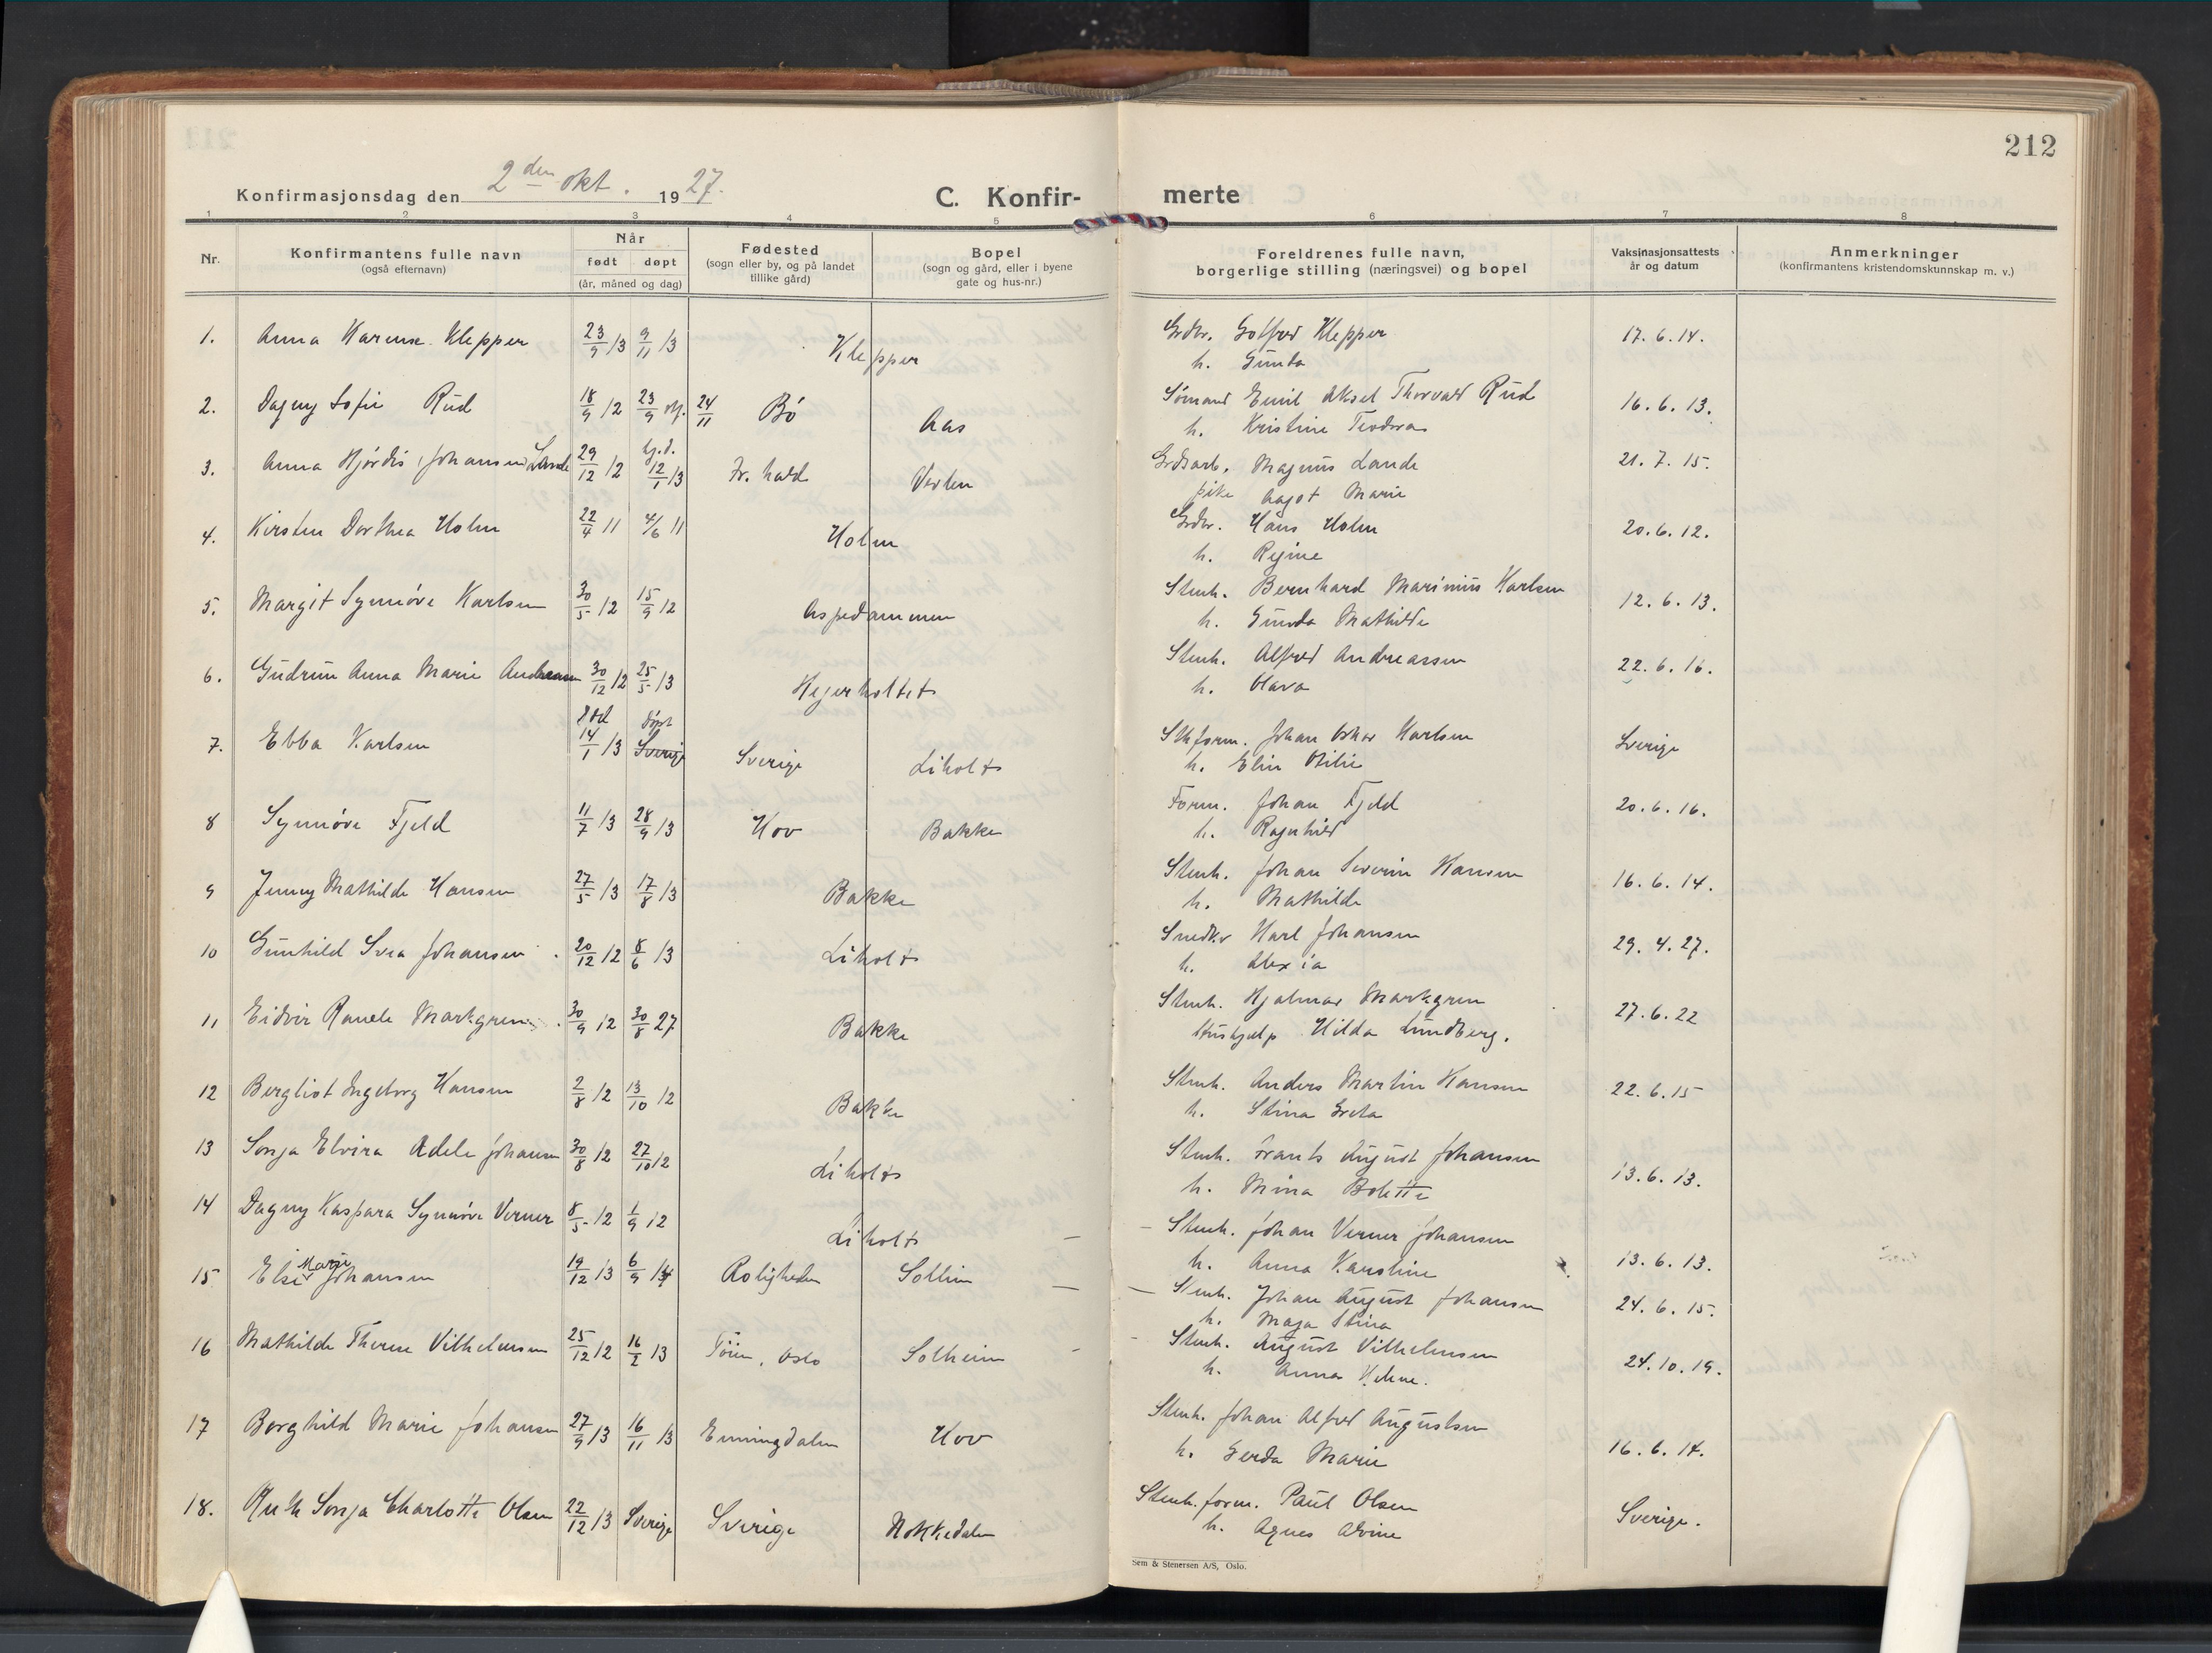 212
Konfirmasjonsdag den 2den okt. 1927. C. Konfir- merte
1 2 3 4 5 6 7 8
Nr. Konfirmantens fulle navn (også efternavn) Når født døpt (år, måned og dag) Fødested (sogn eller by, og på landet tillike gård) Bopel (sogn og gård, eller i byene gate og hus-nr.) Foreldrenes fulle navn, borgerlige stilling (næringsvei) og bopel Vaksinasjonsattests år og datum Anmerkninger (konfirmantens kristendomskunnskap m. v.)
1. Anna Karense Klepper 23/9 13 9/11 13 Klepper Grdbr. Gotfred Klepper 17.6.14.
h. Gunda
2. Dagny Sofie Rud 18/9 12 23/9 24/11 Bö Aas Sömand Emil Aksel Thorvald Rud 16.6.13.
h. Kristine Teodora
3. Anna Hjördis Johansen Lande 29/12 12 hj.d. 12/1 13 Fr.hald Vevlen Grdsarb. Magnus Lande 21.7.15.
pike Aagot Marie
4. Kirsten Dorthea Holm 22/4 11 4/6 11 Holm Grdbr. Hans Holm 20.6.12.
h. Regine
5. Margit Synnöve Karlsen 30/5 12 15/9 12 Aspedammen Stenh. Bernhard Marinius Karlsen 12.6.13.
h. Gunda Mathilde
6. Gudrun Anna Marie Andreassen 30/12 12 25/5 13 Hejerholtet Stenh. Alfred Andreassen 22.6.16.
h. Olava
7. Ebba Karlsen föd 14/1 13 döpt Sverige Sverige Liholt Sth.form. Johan Oskar Karlsen Sverige
h. Elin Otilie
8 Synnöve Fjeld 11/7 13 28/9 13 Hov Bakke Form. Johan Fjeld 20.6.16.
h. Ragnhild
9 Jenny Mathilde Hansen 27/5 13 17/8 13 Bakke Stenh. Johan Severin Hansen 16.6.14.
h. Mathilde
10 Gunhild Svea Johansen 20/12 12 8/6 13 Liholt Snedker Karl Johansen 29.4.27.
h. Alexia
11 Eidvir Ranele Markgren 30/9 12 30/8 27 Bakke Stenh. Hjalmar Markgren 27.6.22
Hushjelp Hilda Lundberg.
12 Bergliot Ingeborg Hansen 2/8 12 13/10 12 Bakke Stenh. Anders Martin Hansen 22.6.15
h. Stina Greta
13 Sonja Elvira Adele Johansen 30/8 12 27/10 12 Liholt Stenh. Frants August Johansen 13.6.13.
h. Mina Bolette
14 Dagny Kaspara Synnöve Verner 8/5 12 1/9 12 Liholt – – Stenh. Johan Verner Johansen 13.6.13.
h. Anna Karoline
15 Else Marie Johansen 19/12 13 6/9 14 Roligheden Sollien – – Stenh. Johan August Johansen 24.6.15.
h. Maja Stina
16 Mathilde Therese Vilhelmsen 25/12 12 16/2 13 Töien, Oslo Solheim – – Stenh. August Vilhelmsen 24.10.19.
h. Anna Helene.
17 Borghild Marie Johansen 27/9 13 16/11 13 Enningdalen Hov Stenh. Johan Alfred Augustsen 16.6.14.
h. Gerda Marie
18. Ruth Sonja Charlotte Olsen 22/12 13 Sverige Sverige Nokkedalen Stenh.form. Paul Olsen Sverige.
h. Agnes Alvine
Sem & Stenersen A/S, Oslo.